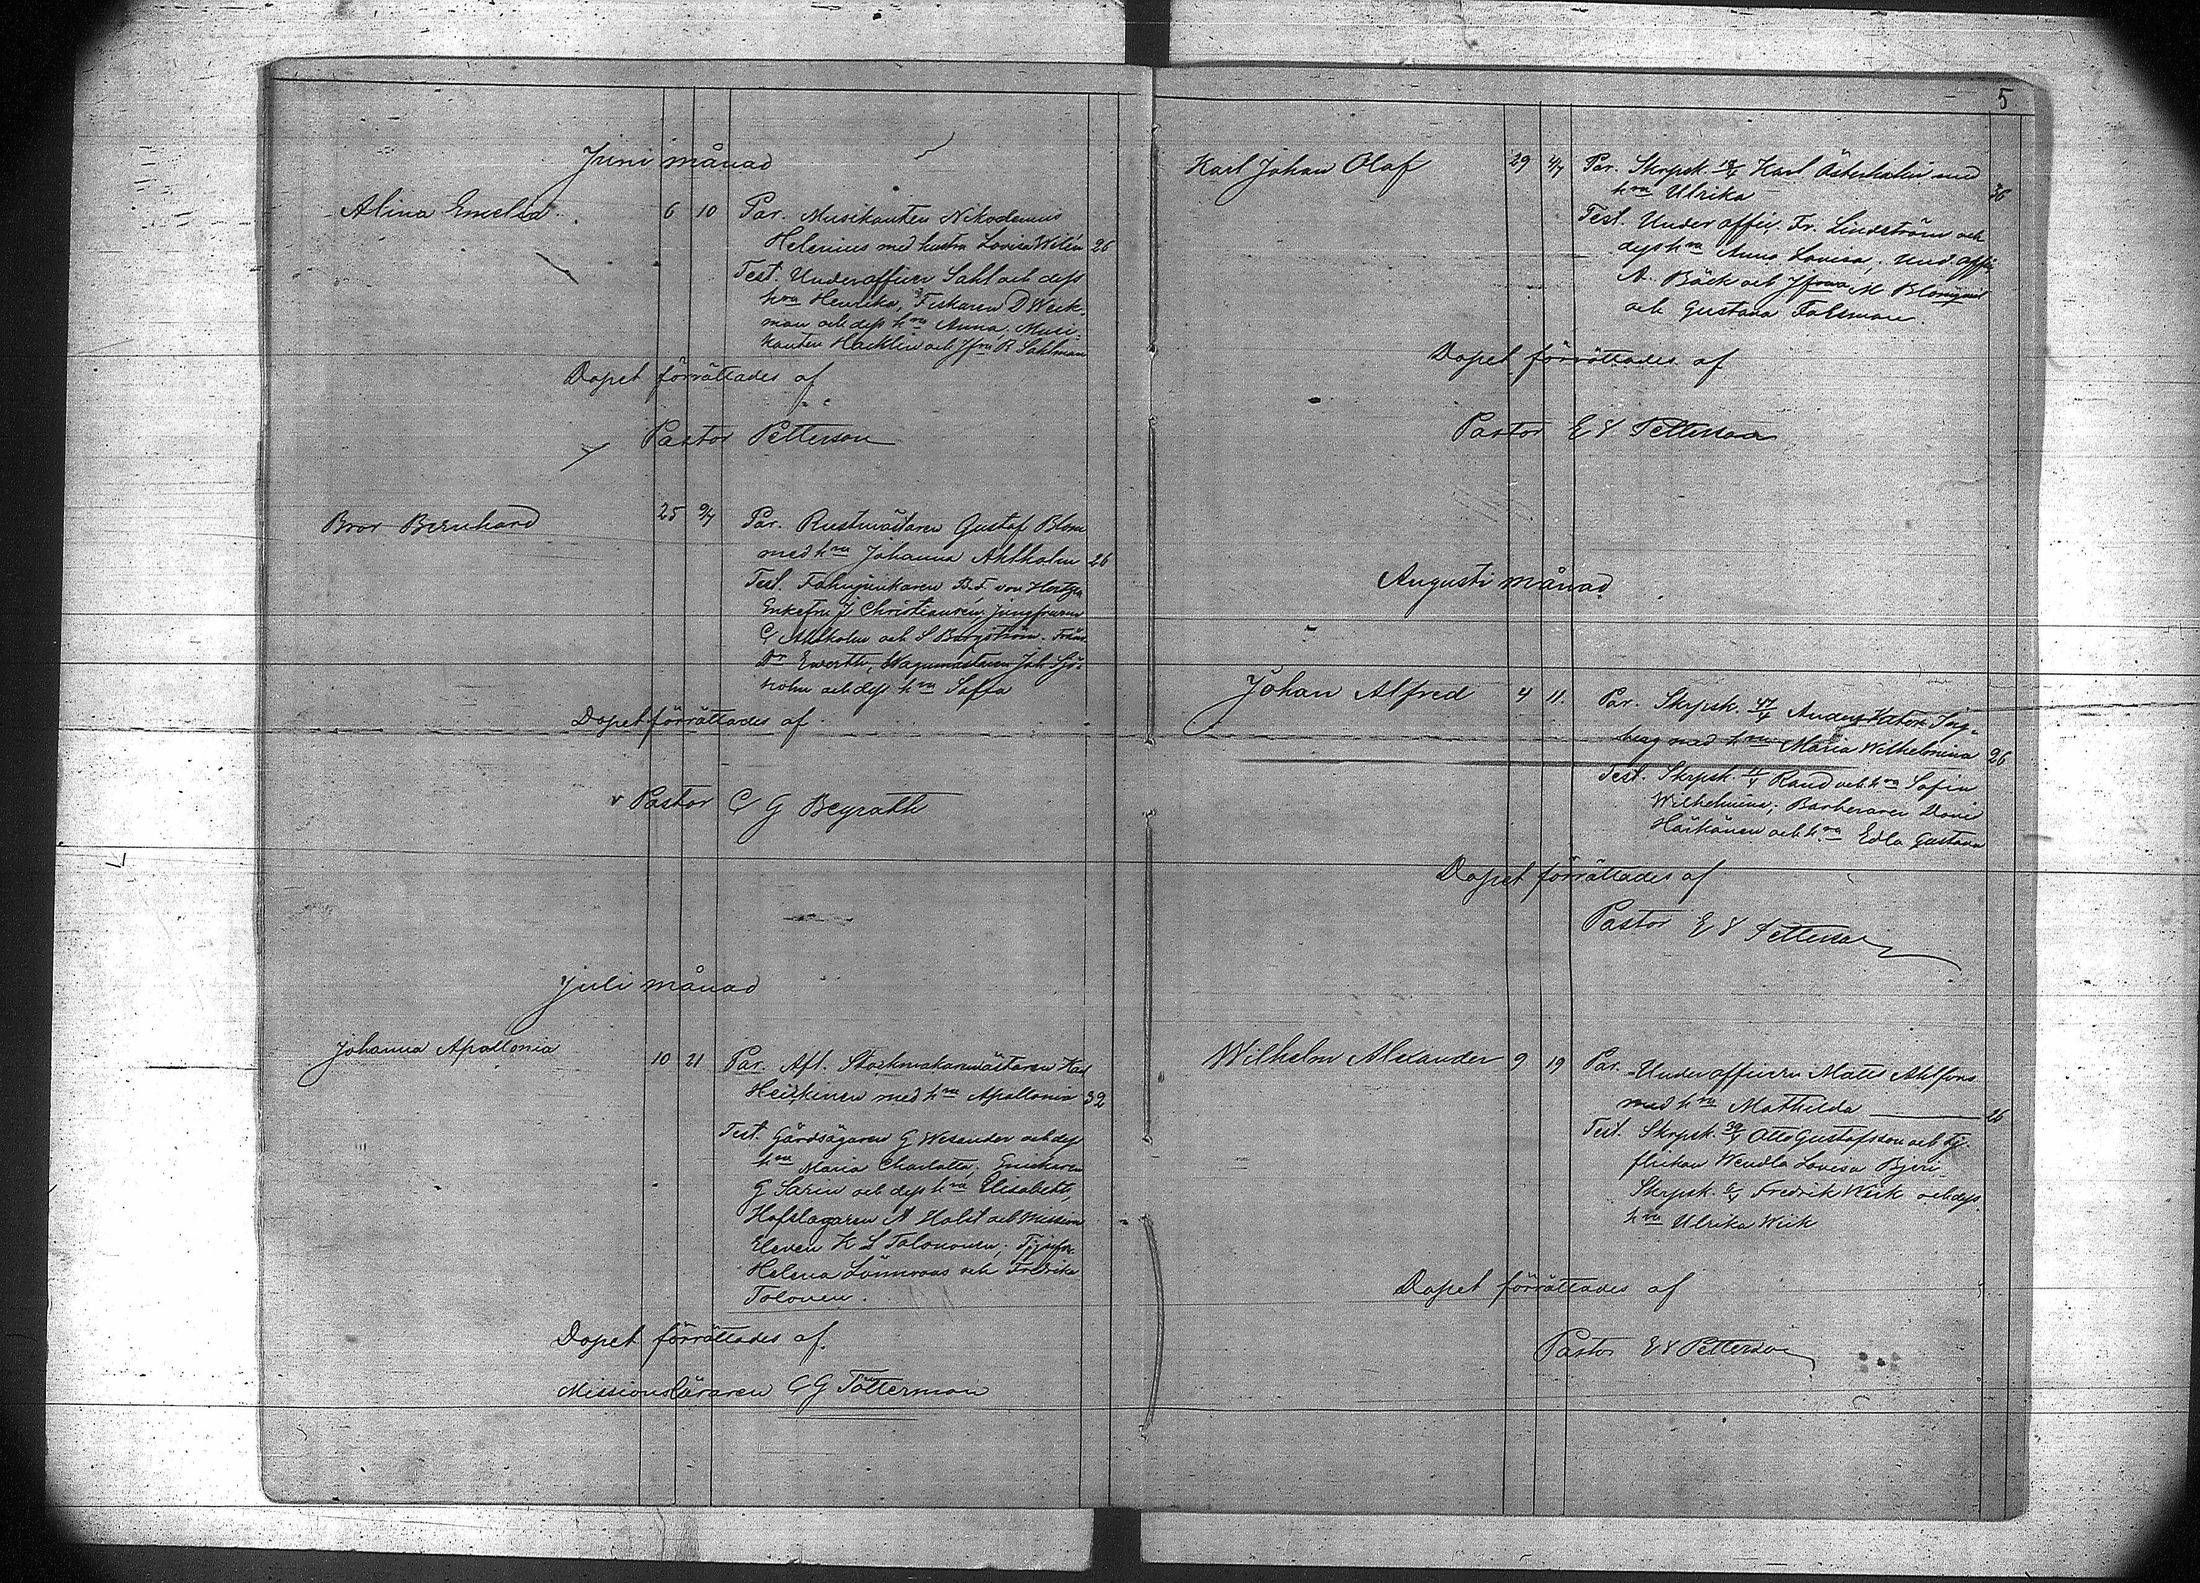 Juni månad
Alina Emelia 6 10 Par. Musikanten Nikodemus
Helenius med hustru Lovisa Wilén 26
Test. Underofficer Sahl och dess
hru Henrika, Fiskaren D Weck-
man och dess hru Anna, Musi-
kanten Hacklin och Jfru B Sahlman
Dopet förrättades af
Pastor Petterson
Bror Bernhard 25 9/7 Par. Rustmästaren Gustaf Blom
med hru Johanna Ahlholm 26
Test. Fahnjunkaren B. F. von Hertzen
Enkefru J Christiansén, jungfrurna
C Ahlholm och S Bergström. Fröken
Ewerth, Wagnmästaren Joh. Sjö-
holm och dess hru Soffa
Dopet förrättades af
v Pastor C G Beyrath
Juli månad
Johanna Apollonia 10 21 Par. Afl. Stockmakaremästaren Karl
Heikinen med hru Apollonia 32
Test. Gårdsägaren G Wesander och dess
hru Maria Charlotta;
G Sarin och dess hru Elisabeth,
Hofslagaren A Holst och Mission
Eleven K L Tolonen;
Helena Lönnroos och Fredrika
Tolonen.
Dopet förrättades af
Missionsläraren C G Tötterman
5
Karl Johan Olaf 29 4/7 Par. Skrpsk. Karl Österholm med
hru Ulrika 36
Test. Underoffic. Fr. Lindström och
dess hru Anna Lovisa; und.offic
A. Bäck och Jfrur M Blomqvist
och Gustava Fahlman.
Dopet förrättades af
Pastor E V Petterson
Augusti månad
Johan Alfred 4 11. Par. Skrpsk. Anders Viktor
berg med hru Maria Wilhelmina 26
Test. Skrpsk. Rand och hru Sofia
Wilhelmina; Barberaren
Härkönen och hru Edla Gustava
Dopet förrättades af
Pastor E V Petterson
Wilhelm Alexander 9 19 Par. Underofficern Matts Ahlfons
med hru Mathilda 26
Test. Skrpsk. Otto Gustafsson och tj.
flickan Wendla Lovisa
Skrpsk. Fredrik Wiik och dess
hru Ulrika Wiik
Dopet förrättades af
Pastor E V Petterson